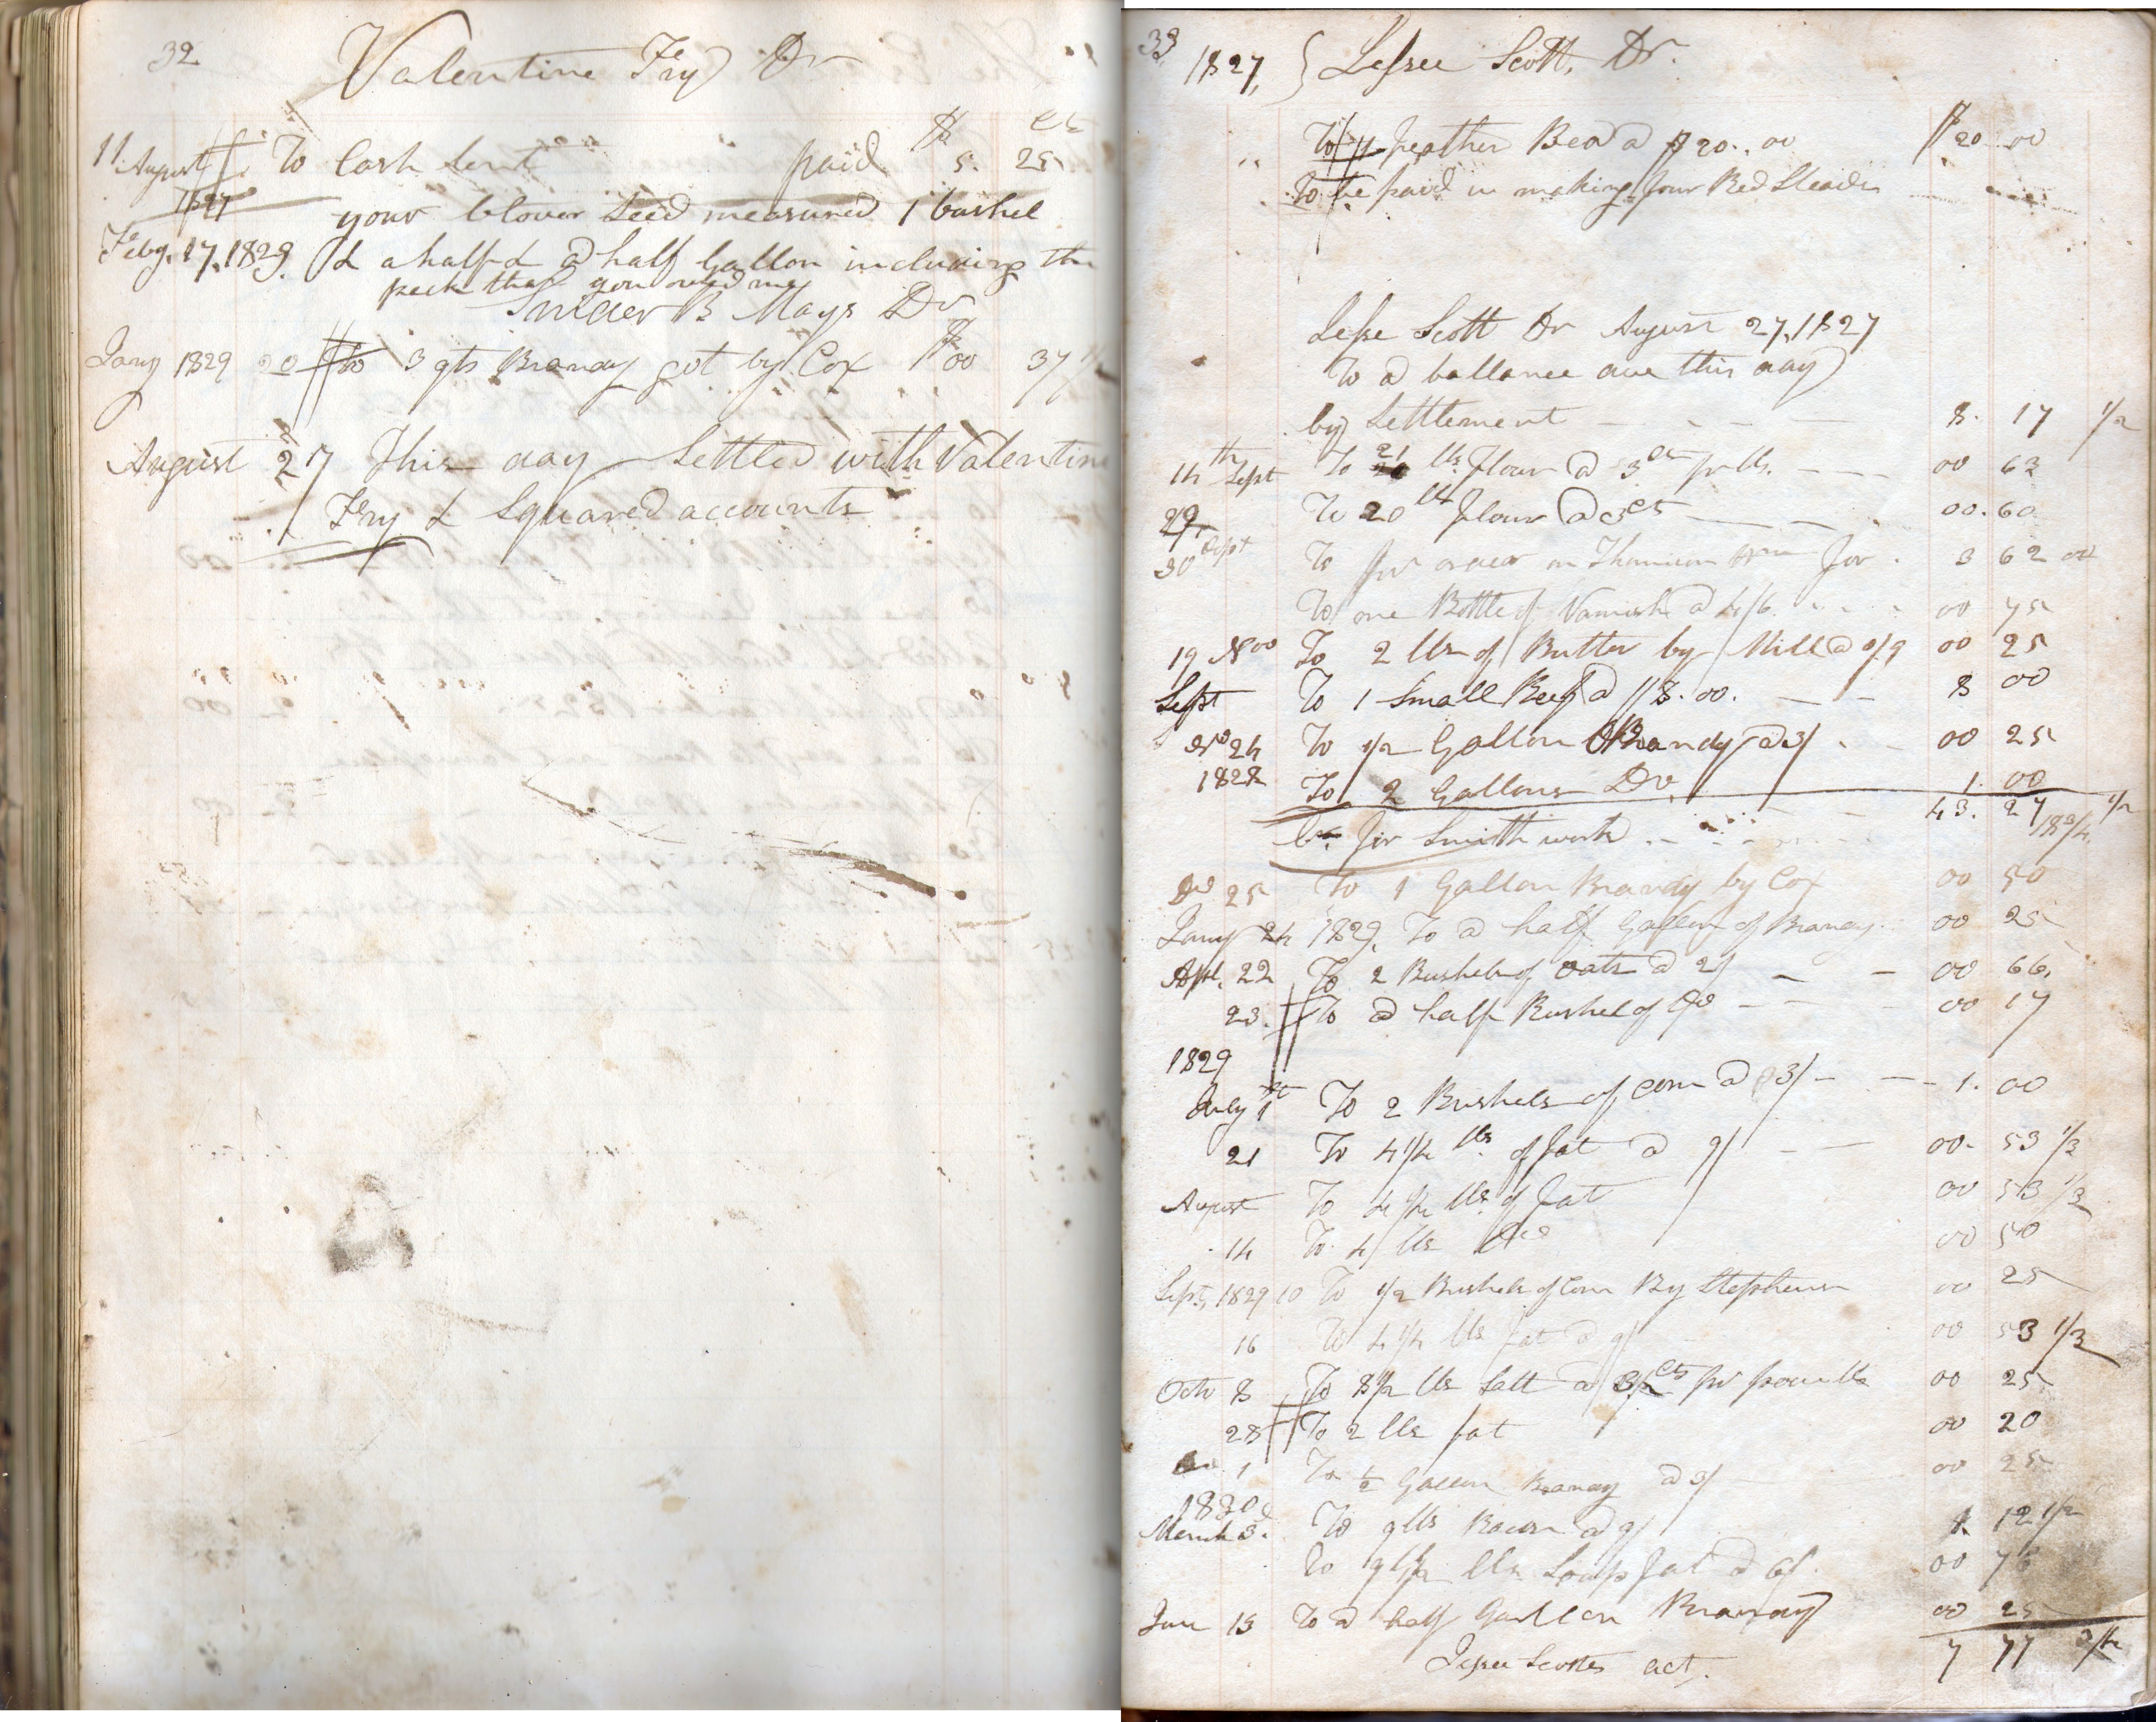 32
Valentine Fry Dr
$ cts
11 August To Cash lent paid 5. 25
1827 your Clover Seed measured 1 bushel
Feby. 17. 1829. & a half & a half Gallon including the
peck that you owed me
B Mays Dr
$
Jany 1829 20 To 3 qts Brandy got by Cox 00 37 1/2
August 27 This day Settled with Valentine
Fry & Squared accounts
33 1827, } Jessee Scott, Dr.
To 1 feather Bed a $20..00 $20 00
To be paid in making four Bed Steads
Jesse Scott Dr August 27, 1827
To a ballance due this day
by Settlement 8. 17 1/2
14th Sept To 21 lbs. flour a 3 cts pr lb. 00 63
29. To 20 lb flour a 3 cts 00.60
30 Sept To pr order on for 3 62 00
To one Bottle of Varnish a 4/6 00 75
19 Nov To 2 lbs of Butter by Mill a 0/9 00 25
Sept To 1 Small Beef a $8.00. 8 00
24 To 1/2 Gallon Brandy a 3/ 00 25
1828 To 2 Gallons Do. 1. 00
43. 27 1/2
for Smith work 18 3/4.
Do 25 To 1 Gallon Brandy by Cox 00 50
Jany 24 1829. To a half Gallon of Brandy. 00 25
Apl. 22 To 2 Bushels of oats a 2/ 00 66.
23. To a half Bushel of Do 00 17
1829
July 1st To 2 Bushels of corn a 3/ 1. 00
21 To 4 1/4 lbs of fat a 9/ 00. 53 1/3
August To 4 1/4 lbs of fat 00 53 1/3
14 To 4 lbs Do 00 50
Sept, 1829 10 To 1/2 Bushels of Corn By Stephens 00 25
16 To 4 1/4 lbs fat a 9/ 00 53 1/3
Octo 8 To 8 1/2 lbs Salt a 3/2 cts pr pound 00 25
28 To 2 lbs fat 00 20
1 To 1/2 Gallon Brandy a 3/ 00 25
1830
March 3. To 9 lbs Bacon a 9/ 1. 12 1/2
To 9 1/2 lbs Soap fat a 6/. 00
June 13 To a half Gallon Brandy 00 25
Jesse Scotts act. 7 77 3/4